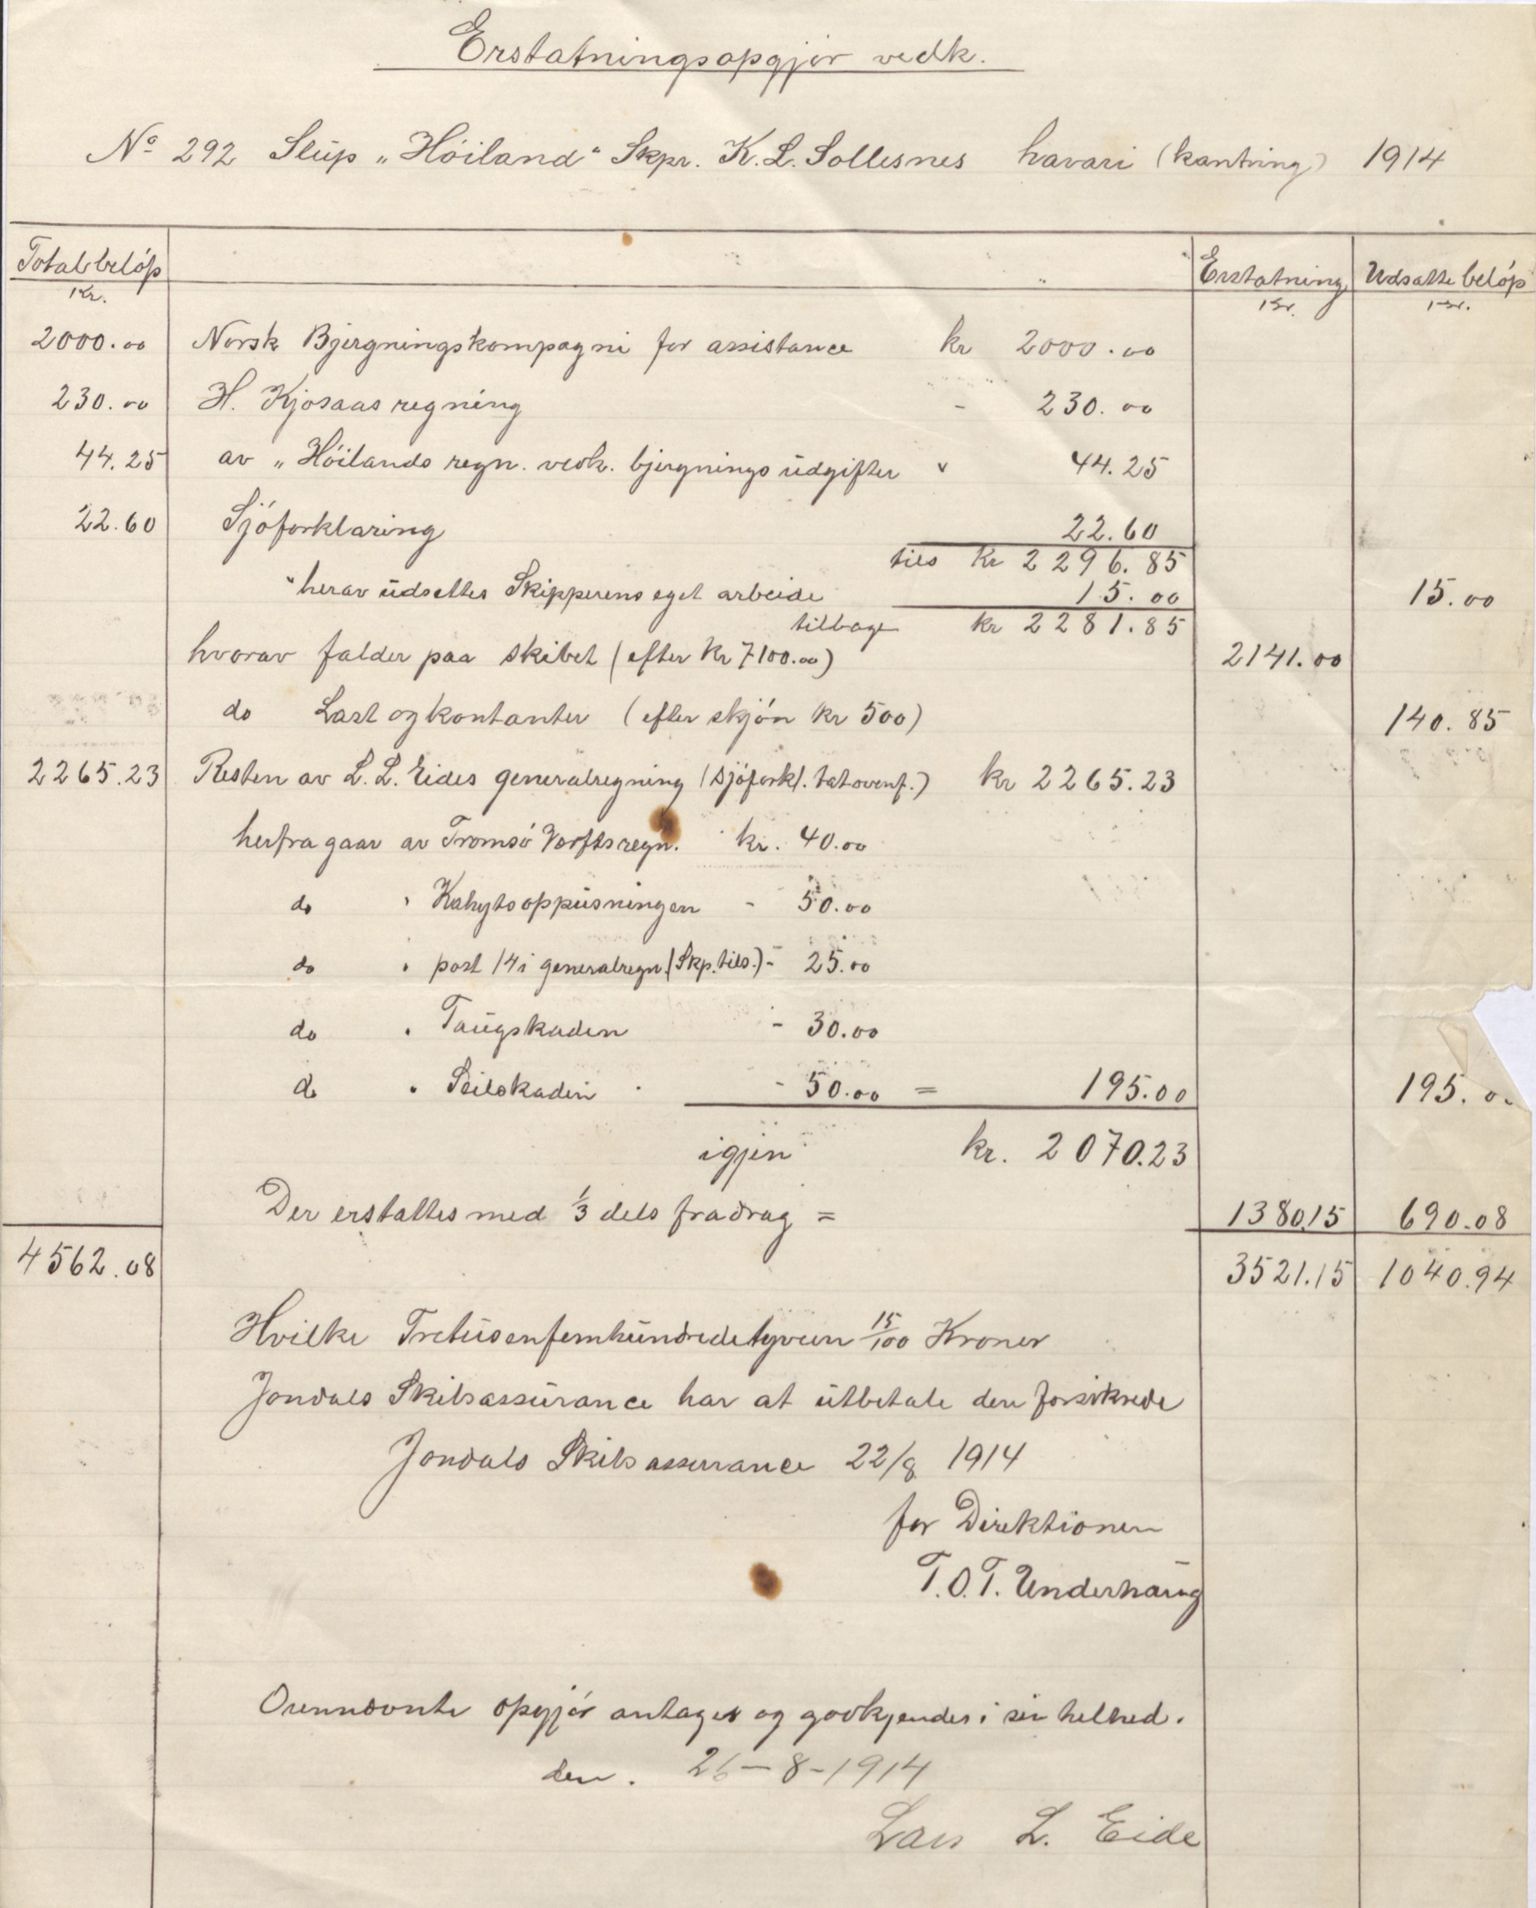 Erstatningsopgjør vedk.
No 292 Slup "Høiland" Skpr. K. L. Sollesnes havari (kantring) 1914
Totalbeløp Erstatning Udsatte beløp
Kr. Kr. Kr.
2000.00 Norsk Bjergningskompagni for assistance kr 2000.00
230.00 H. Kjosaas regning - 230.00
44.25 av "Høilands regn. vedk. bjergningsudgifter " 44.25
22.60 Sjøforklaring 22.60
tils kr 2296.85
"herav udsettes Skipperens eget arbeide 15.00 15.00
tilbage kr 2281.85
hvorav falder paa skibet (efter kr 7100.00) 2141.00
do Last og kontanter (efter skjøn kr 500) 140.85
2265.23 Resten av L. L. Eides generalregning (sjøforkl. tat ovenf.) kr 2265.23
herfra gaar av Tromsø Værftsregn. kr. 40.00
do " Kahytsoppusningen - 50.00
do " post 14 i generalregn. (Skp. tils.) - 25.00
do " Taugskaden - 30.00
do " Seilskaden - 50.00 = 195.00 195.00
igjen kr. 2070.23
Der erstattes med 1/3 dels fradrag = 1380.15 690.08
4562.08 3521.15 1040.94
Hvilke Tretusenfemhundredetyveen 15/100 Kroner
Jondals Skibsassurance har at utbetale den forsikrede
Jondals Skibsassurance 22/8 1914
for Direktionen
T. O. T. Underhaug
Ovennævnte opgjør antages og godkjendes i sin helhed.
den. 26-8-1914
Lars L. Eide